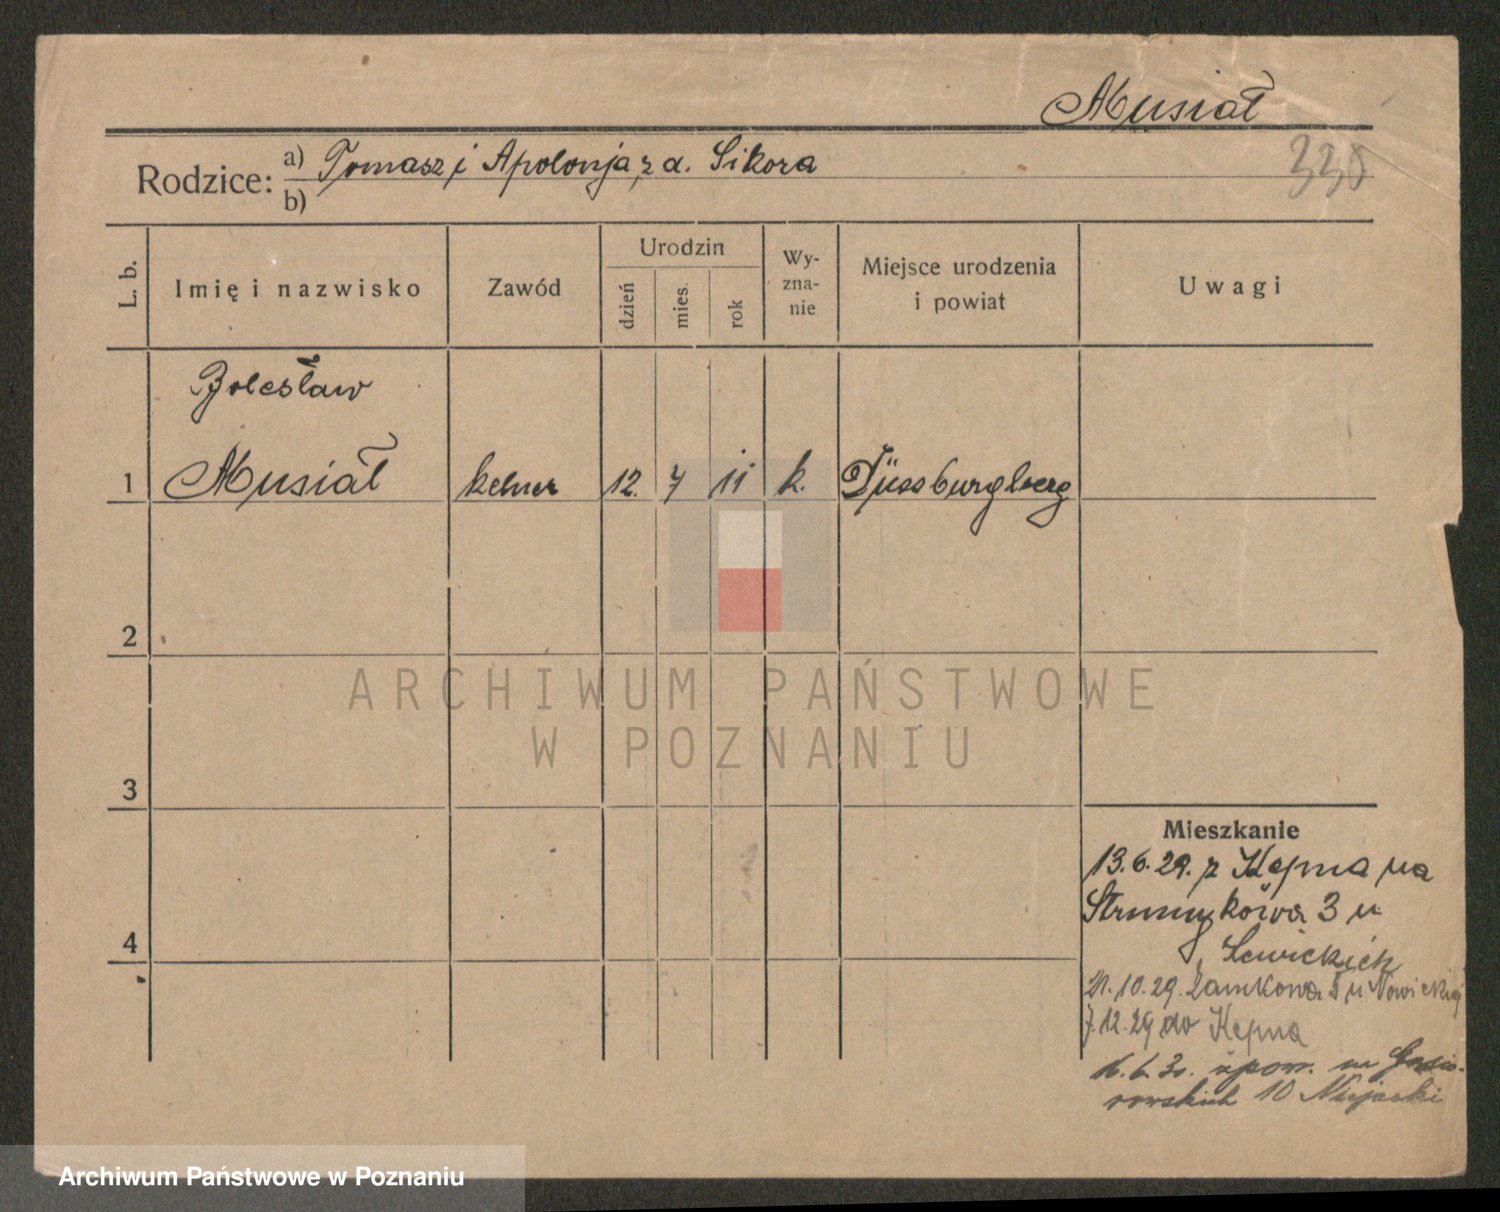 Musiał
330
Rodzice: a) Tomasz i Apolonja, z d. Sikora
b)
L. b.
Imię i nazwisko
Zawód
Urodzin
dzień
mies.
rok
Wy-
zna-
nie
Miejsce urodzenia
i powiat
Uwagi
Bolesław
1 Musiał kelner 12. 7 11 k. Düssburgberg
2
3
4
Mieszkanie
13.6.29. z Kępna na
Strumykowa 3 u
Lewickich
21.10.29. Zamkowa 5 u Nowickiej
7.12.29 do Kępna
16.6.30. zpow. na Gąsio-
rowskich 10
ARCHIWUM PAŃSTWOWE
W POZNANIU
Archiwum Państwowe w Poznaniu